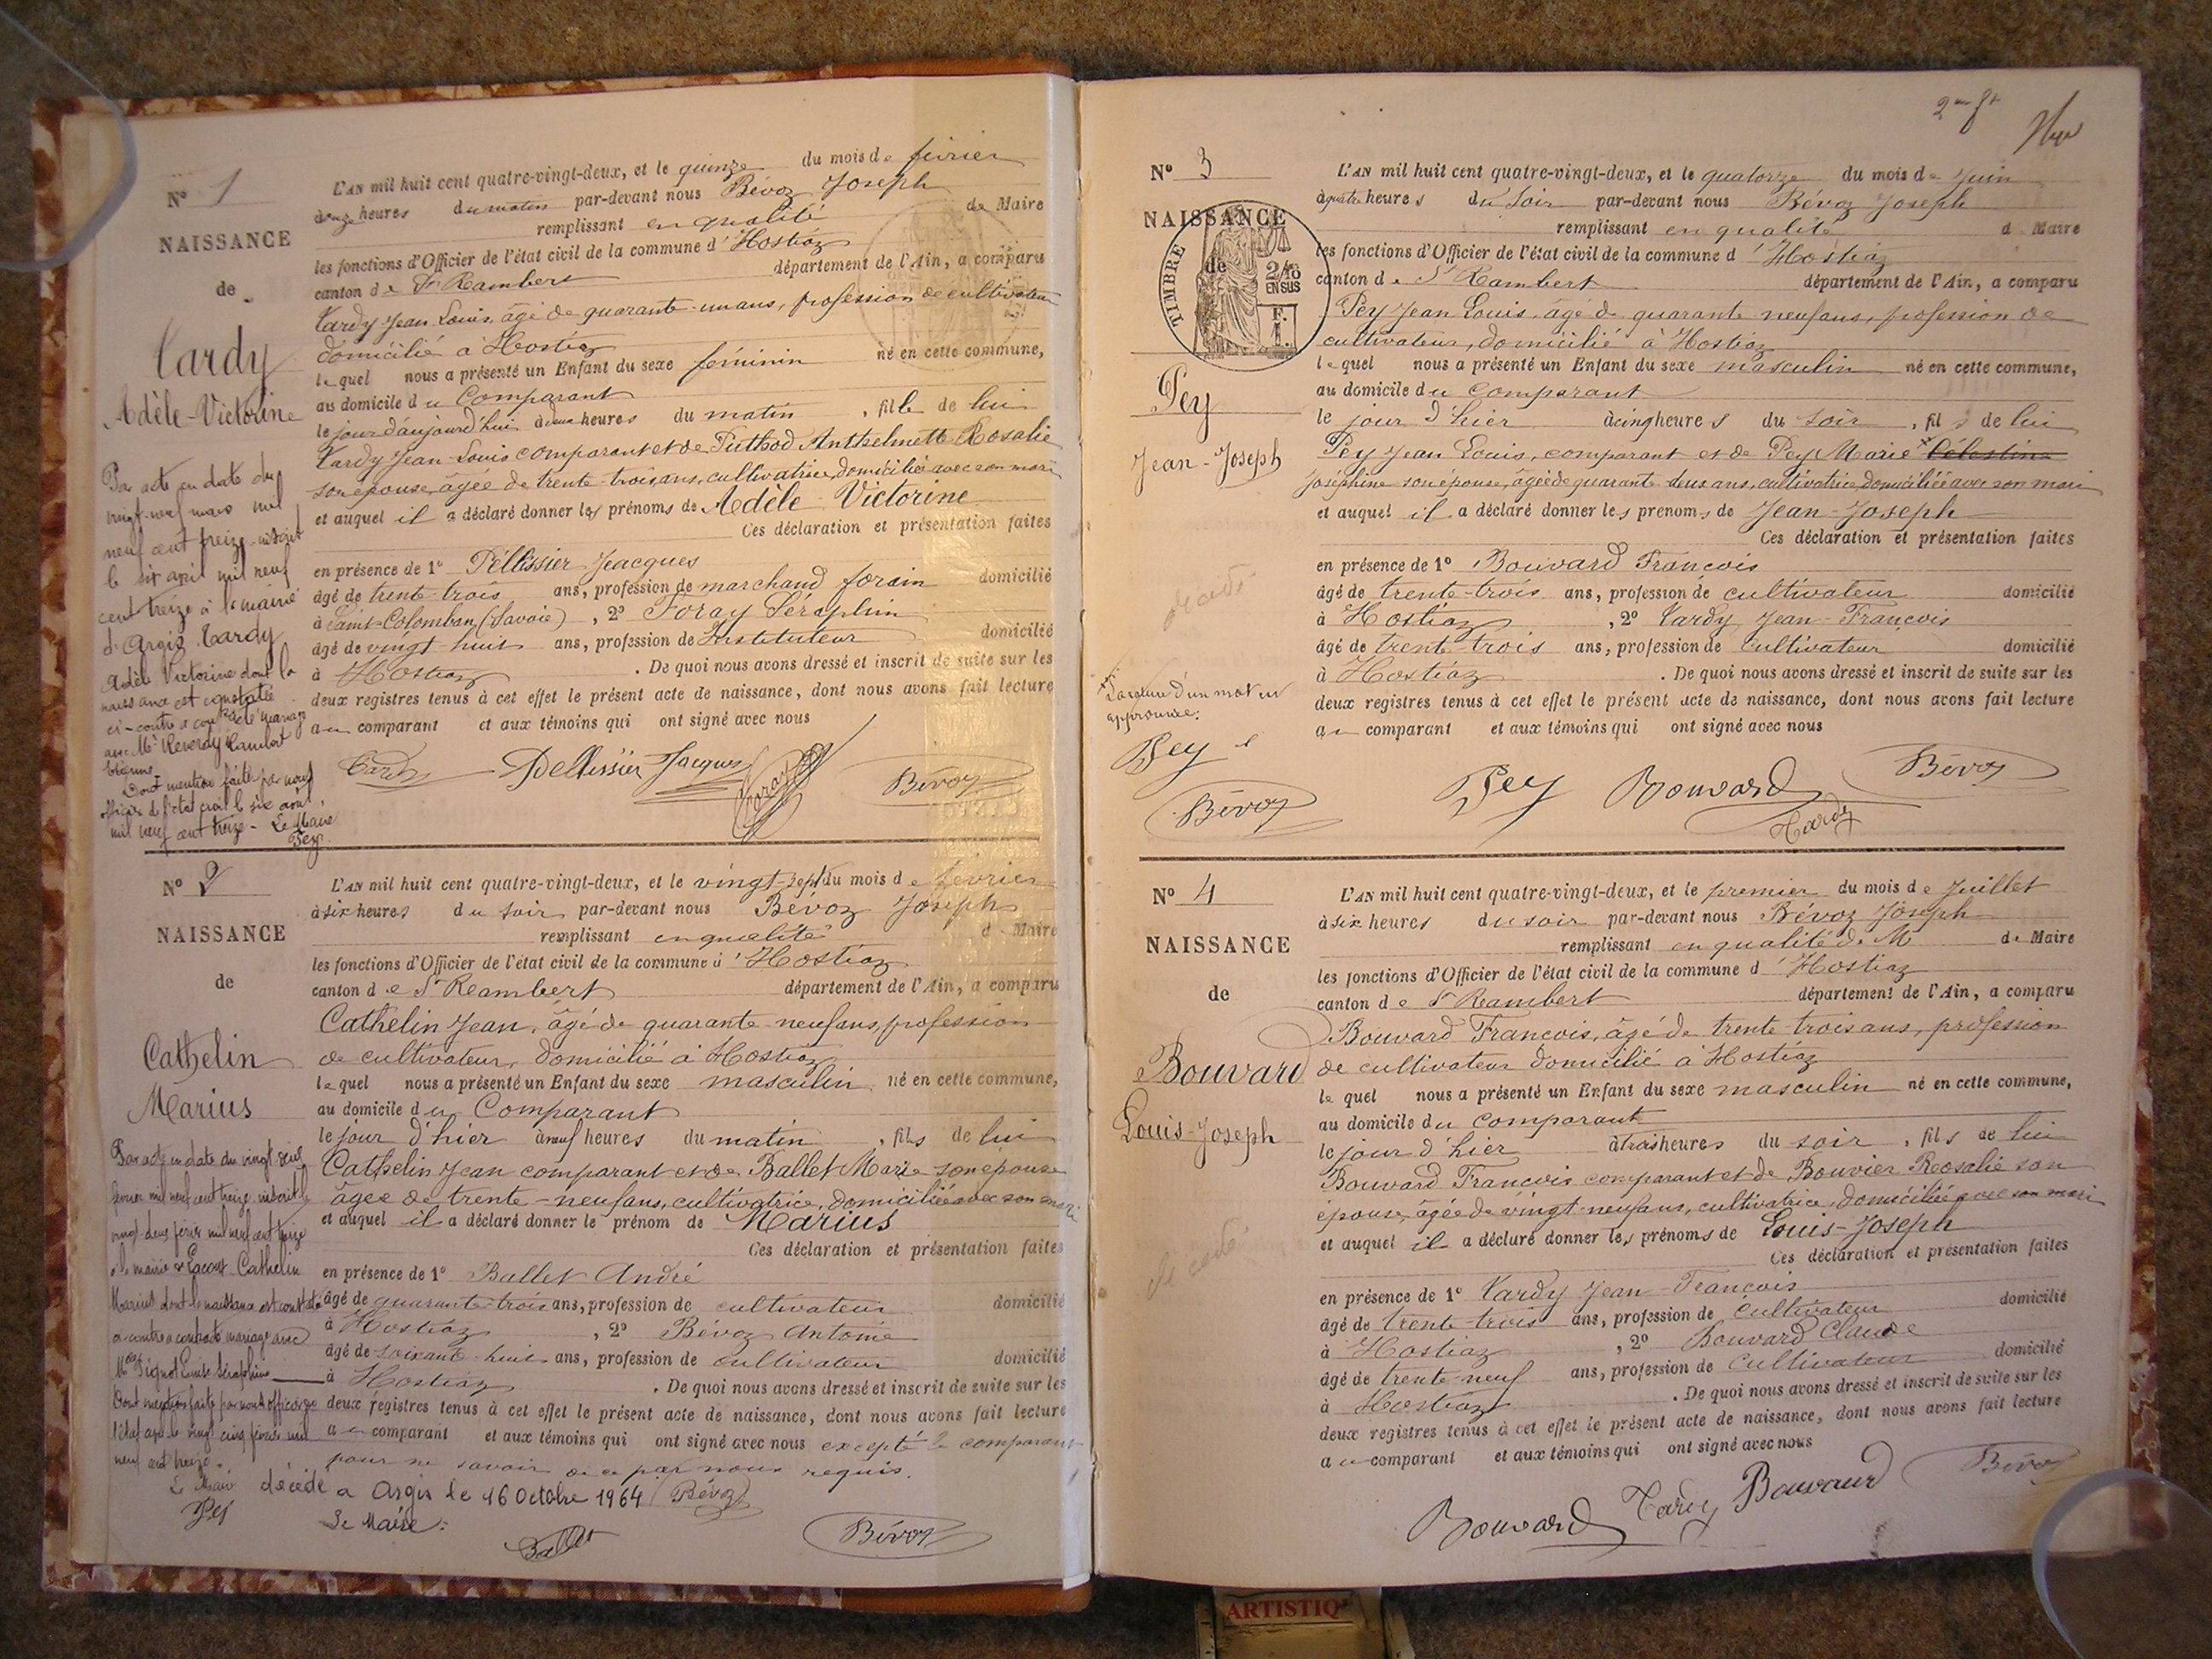 N° 1
NAISSANCE
de
Tardy
Adèle-Victorine
Par acte en date du
vingt-neuf mars mil
neuf cent treize inscrit
le six avril mil neuf
cent treize à la mairie
d'Argis Tardy
Adèle Victorine dont la
naissance est constatée
ci-contre a contracté mariage
avec Mr Reverdy Rambert
Etienne
Dont mention faite par nous
officier de l'état civil le six août
mil neuf cent treize - Le Maire
Pey
L'AN mil huit cent quatre-vingt-deux, et le quinze du mois de février
à onze heures du matin par-devant nous Bévoz Joseph
remplissant en qualité de Maire
les fonctions d'Officier de l'état civil de la commune d'Hostiaz
canton de St Rambert département de l'Ain, a comparu
Tardy Jean Louis, âgé de quarante-un ans, profession de cultivateur
domicilié à Hostiaz
lequel nous a présenté un Enfant du sexe féminin né en cette commune,
au domicile du Comparant
le jour d'aujourd'hui à deux heures du matin, fille de lui
Tardy Jean-Louis comparant et de Puthod Anthelmette Rosalie
son épouse, âgée de trente-trois ans, cultivatrice, domiciliée avec son mari
et auquel il a déclaré donner les prénoms de Adèle-Victorine
Ces déclaration et présentation faites
en présence de 1° Pellissier Jacques
âgé de trente-trois ans, profession de marchand forain domicilié
à Saint-Colomban (Savoie), 2° Foray Séraphin
âgé de vingt-huit ans, profession de Instituteur domicilié
à Hostiaz. De quoi nous avons dressé et inscrit de suite sur les
deux registres tenus à cet effet le présent acte de naissance, dont nous avons fait lecture
au comparant et aux témoins qui ont signé avec nous
Tardy Pellissier Jacques Foray Bévoz
N° 2
NAISSANCE
de
Cathelin
Marius
Par acte en date du vingt-deux
février mil neuf cent treize inscrit le
vingt-deux février mil neuf cent treize
à la mairie de Cathelin
Marius dont la naissance est constatée
ci-contre a contracté mariage avec
Melle Louise Séraphine
Dont mention faite par nous officier de
l'état civil le vingt cinq février mil
neuf cent treize.
Le Maire
Pey
L'AN mil huit cent quatre-vingt-deux, et le vingt-sept du mois de février
à six heures du soir par-devant nous Bévoz Joseph
remplissant en qualité de Maire
les fonctions d'Officier de l'état civil de la commune d'Hostiaz
canton de St Rambert département de l'Ain, a comparu
Cathelin Jean, âgé de quarante-neuf ans, profession
de cultivateur, domicilié à Hostiaz
lequel nous a présenté un Enfant du sexe masculin né en cette commune,
au domicile du Comparant
le jour d'hier à neuf heures du matin, fils de lui
Cathelin Jean comparant et de Ballet Marie son épouse
âgée de trente-neuf ans, cultivatrice, domiciliée avec son mari
et auquel il a déclaré donner le prénom de Marius
Ces déclaration et présentation faites
en présence de 1° Ballet André
âgé de quarante-trois ans, profession de cultivateur domicilié
à Hostiaz, 2° Bévoz Antoine
âgé de soixante-huit ans, profession de cultivateur domicilié
à Hostiaz. De quoi nous avons dressé et inscrit de suite sur les
deux registres tenus à cet effet le présent acte de naissance, dont nous avons fait lecture
au comparant et aux témoins qui ont signé avec nous excepté le comparant
pour ne savoir de ce par nous requis.
décédé à Argis le 16 Octobre 1964 Bévoz
Le Maire:
Ballet Bévoz
2me ft
N° 3
NAISSANCE
de
TIMBRE
2/10
EN SUS
F.
1.
Pey
Jean-Joseph
rature d'un mot
approuvée.
Pey
Bévoz
L'AN mil huit cent quatre-vingt-deux, et le quatorze du mois de Juin
à quatre heures du Soir par-devant nous Bévoz Joseph
remplissant en qualité de Maire
les fonctions d'Officier de l'état civil de la commune d'Hostiaz
canton de St Rambert département de l'Ain, a comparu
Pey Jean Louis, âgé de quarante neuf ans, profession de
cultivateur, domicilié à Hostiaz
lequel nous a présenté un Enfant du sexe masculin né en cette commune,
au domicile du comparant
le jour d'hier à cinq heures du soir, fils de lui
Pey Jean Louis, comparant et de Pey Marie Célestine
Joséphine son épouse, âgée de quarante-deux ans, cultivatrice, domiciliée avec son mari
et auquel il a déclaré donner les prénoms de Jean-Joseph
Ces déclaration et présentation faites
en présence de 1° Bouvard François
âgé de trente-trois ans, profession de cultivateur domicilié
à Hostiaz, 2° Tardy Jean-François
âgé de trente-trois ans, profession de cultivateur domicilié
à Hostiaz. De quoi nous avons dressé et inscrit de suite sur les
deux registres tenus à cet effet le présent acte de naissance, dont nous avons fait lecture
au comparant et aux témoins qui ont signé avec nous
Pey Bouvard Bévoz
Tardy
N° 4
NAISSANCE
de
Bouvard
Louis-Joseph
L'AN mil huit cent quatre-vingt-deux, et le premier du mois de Juillet
à six heures du soir par-devant nous Bévoz Joseph
remplissant en qualité de M de Maire
les fonctions d'Officier de l'état civil de la commune d'Hostiaz
canton de St Rambert département de l'Ain, a comparu
Bouvard François, âgé de trente-trois ans, profession
de cultivateur domicilié à Hostiaz
lequel nous a présenté un Enfant du sexe masculin né en cette commune,
au domicile du comparant
le jour d'hier à trois heures du soir, fils de lui
Bouvard François comparant et de Bouvier Rosalie son
épouse, âgée de vingt-neuf ans, cultivatrice, domiciliée avec son mari
et auquel il a déclaré donner les prénoms de Louis-Joseph
Ces déclaration et présentation faites
en présence de 1° Tardy Jean-François
âgé de trente-trois ans, profession de cultivateur domicilié
à Hostiaz, 2° Bouvard Claude
âgé de trente-neuf ans, profession de cultivateur domicilié
à Hostiaz. De quoi nous avons dressé et inscrit de suite sur les
deux registres tenus à cet effet le présent acte de naissance, dont nous avons fait lecture
au comparant et aux témoins qui ont signé avec nous
Bouvard Tardy Bouvard Bévoz
ARTISTIQ